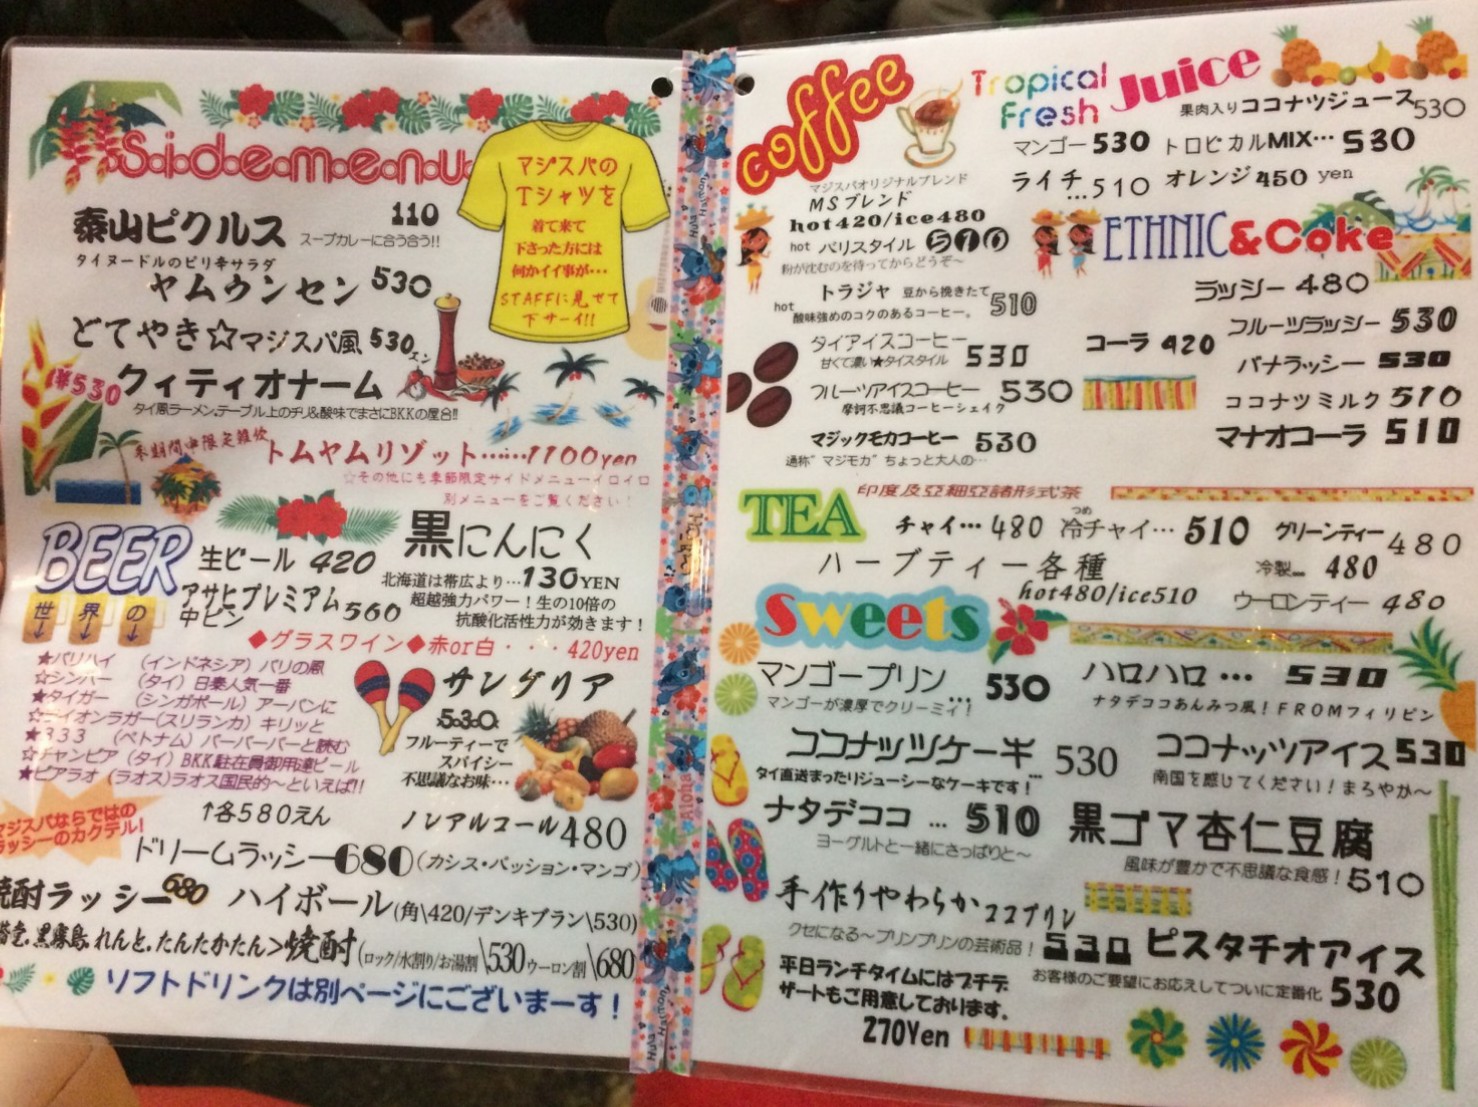 Side menu
マジスパの
Tシャツを
着て来て
下さった方には
何かイイ事が…
STAFFに見せて
下サーイ!!
泰山ピクルス 110
スープカレーに合う合う!!
タイヌードルのピリ辛サラダ
ヤムウンセン 530
どてやき☆マジスパ風 530エン
¥530 クィティオナーム
タイ風ラーメン、テーブル上のチリ&酸味でまさにBKKの屋台!!
トムヤムリゾット……1100yen
☆その他にも季節限定サイドメニューイロイロ
別メニューをご覧ください!
BEER
世界の
生ビール 420
アサヒプレミアム
中ビン 560
黒にんにく
北海道は帯広より…130YEN
超越強力パワー!生の10倍の
抗酸化活性力が効きます!
◆グラスワイン◆赤or白・・・420yen
★バリハイ (インドネシア)バリの風
☆シンハー (タイ)日泰人気一番
★タイガー (シンガポール)アーバンに
☆ライオンラガー(スリランカ)キリッと
★333 (ベトナム)バーバーバーと読む
☆チャンピア(タイ)BKK駐在員御用達ビール
★ビアラオ(ラオス)ラオス国民的~といえば!!
↑各580えん
サングリア
530
フルーティーで
スパイシー
不思議なお味…
ノンアルコール480
マジスパならではの
ラッシーのカクテル!
ドリームラッシー680(カシス・パッション・マンゴ)
焼酎ラッシー680 ハイボール(角\420/デンキブラン\530)
黒霧島,れんと,たんたかたん>焼酎(ロック/水割り/お湯割\530ウーロン割\680)
ソフトドリンクは別ページにございまーす!
Aloha
coffee
マジスパオリジナルブレンド
MSブレンド
hot420/ice480
hot バリスタイル 510
粉が沈むのを待ってからどうぞ~
hot トラジャ 豆から挽きたて 510
酸味強めのコクのあるコーヒー。
タイアイスコーヒー 530
甘くて濃い★タイスタイル
フルーツアイスコーヒー 530
摩訶不思議コーヒーシェイク
マジックモカコーヒー 530
通称"マジモカ"ちょっと大人の…
Tropical Fresh Juice
果肉入りココナツジュース530
マンゴー 530 トロピカルMIX… 530
ライチ…510 オレンジ 450 yen
ETHNIC&Coke
ラッシー 480
コーラ 420
フルーツラッシー 530
バナラッシー 530
ココナツミルク 510
マナオコーラ 510
TEA
印度及亞細亞諸形式茶
チャイ… 480 冷チャイ… 510
つめ
グリーンティー 480
ハーブティー各種
hot480/ice510
冷製… 480
ウーロンティー 480
Sweets
マンゴープリン… 530
マンゴーが濃厚でクリーミィ!
ハロハロ… 530
ナタデココあんみつ風!FROMフィリピン
ココナッツケーキ… 530
タイ直送まったりジューシーなケーキです!
ココナッツアイス530
南国を感じてください!まろやか~
ナタデココ … 510
ヨーグルトと一緒にさっぱりと~
黒ゴマ杏仁豆腐
風味が豊かで不思議な食感!510
手作りやわらかココプリン
クセになる~プリンプリンの芸術品! 530
ピスタチオアイス
お客様のご要望にお応えしてついに定番化 530
平日ランチタイムにはプチデ
ザートもご用意しております。
270Yen